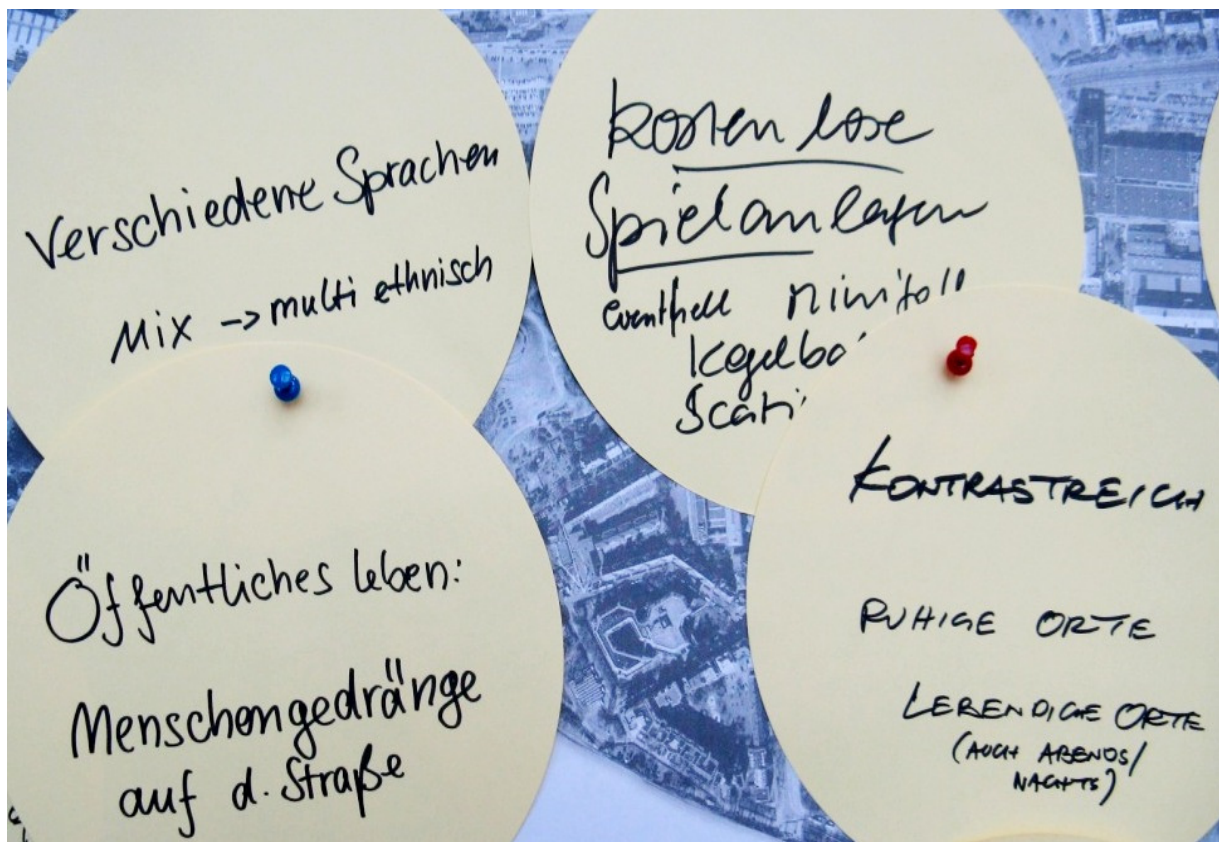 Verschiedene Sprachen
Mix -> multi ethnisch
kostenlose
Spielanlagen
eventuell
Öffentliches Leben:
Menschengedränge
auf d. Straße
KONTRASTREICH
RUHIGE ORTE
LEBENDIGE ORTE
(AUCH ABENDS/
NACHTS)